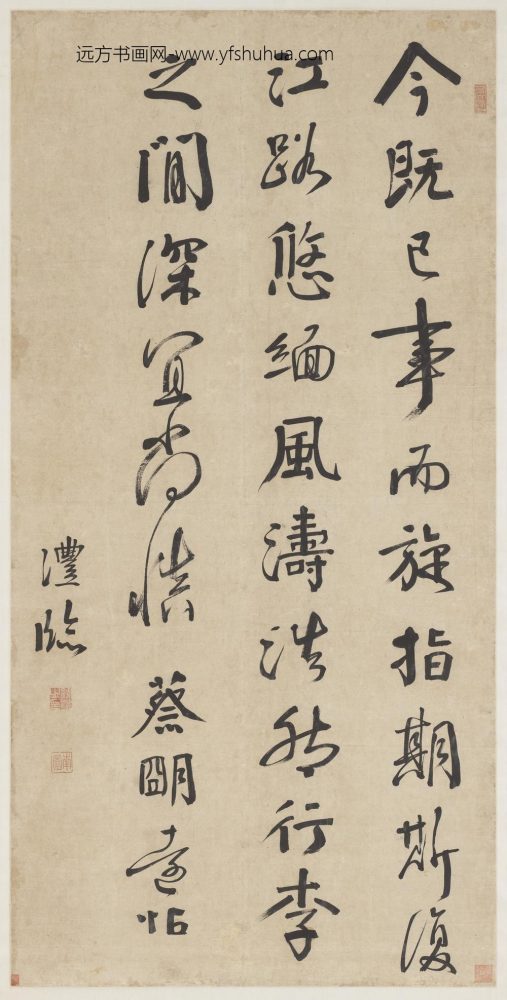 远方书画网-www.yfshuhua.com
今既已事而旋指期斯復
江路悠緬風濤浩然行李
之間深宜尚慎 蔡明遠帖
澧臨